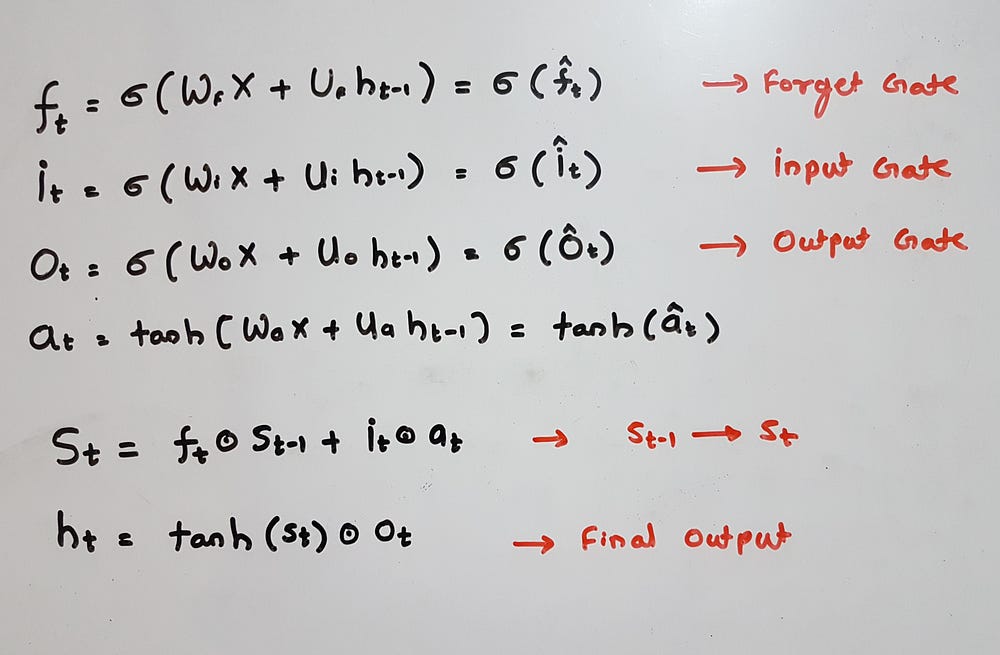 fₜ = σ(W_f X + U_f hₜ₋₁) = σ(f̂ₜ) → Forget Gate
iₜ = σ(Wᵢ X + Uᵢ hₜ₋₁) = σ(îₜ) → Input Gate
Oₜ = σ(Wₒ X + Uₒ hₜ₋₁) = σ(Ôₜ) → Output Gate
aₜ = tanh(Wₐ X + Uₐ hₜ₋₁) = tanh(âₜ)
Sₜ = fₜ ⊙ Sₜ₋₁ + iₜ ⊙ aₜ → Sₜ₋₁ → Sₜ
hₜ = tanh(Sₜ) ⊙ Oₜ → Final Output